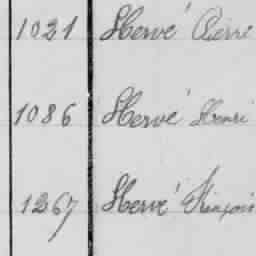 1021 Hervé Pierre
1086 Hervé Henri
1267 Hervé François